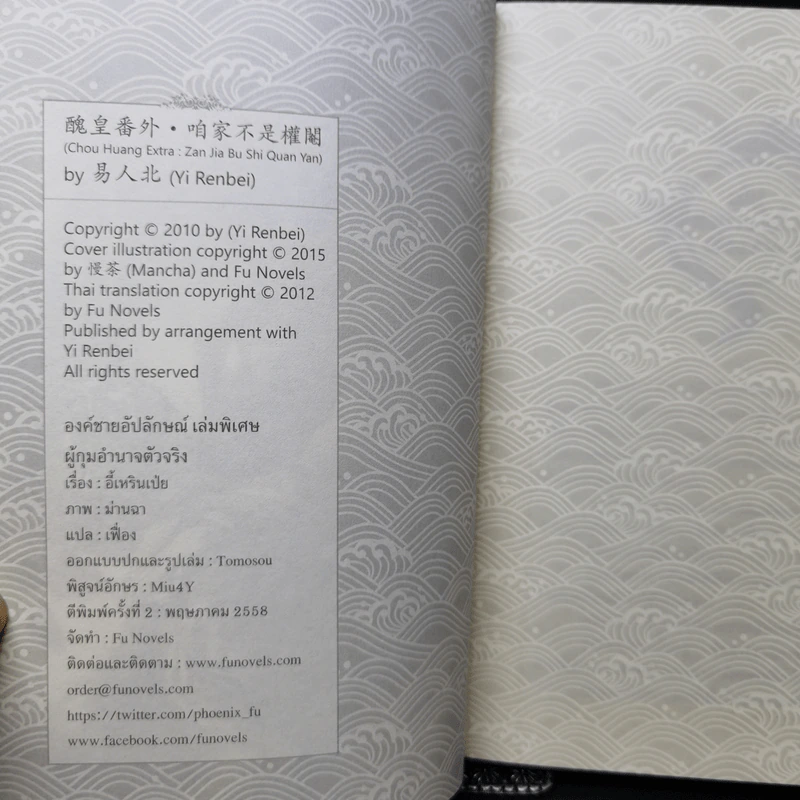 醜皇番外・咱家不是權閹
(Chou Huang Extra : Zan Jia Bu Shi Quan Yan)
by 易人北 (Yi Renbei)
Copyright © 2010 by (Yi Renbei)
Cover illustration copyright © 2015
by 慢茶 (Mancha) and Fu Novels
Thai translation copyright © 2012
by Fu Novels
Published by arrangement with
Yi Renbei
All rights reserved
องค์ชายอัปลักษณ์ เล่มพิเศษ
ผู้กุมอำนาจตัวจริง
เรื่อง : อี้เหรินเป่ย
ภาพ : ม่านฉา
แปล : เฟื่อง
ออกแบบปกและรูปเล่ม : Tomosou
พิสูจน์อักษร : Miu4Y
ตีพิมพ์ครั้งที่ 2 : พฤษภาคม 2558
จัดทำ : Fu Novels
ติดต่อและติดตาม : www.funovels.com
order@funovels.com
https://twitter.com/phoenix_fu
www.facebook.com/funovels